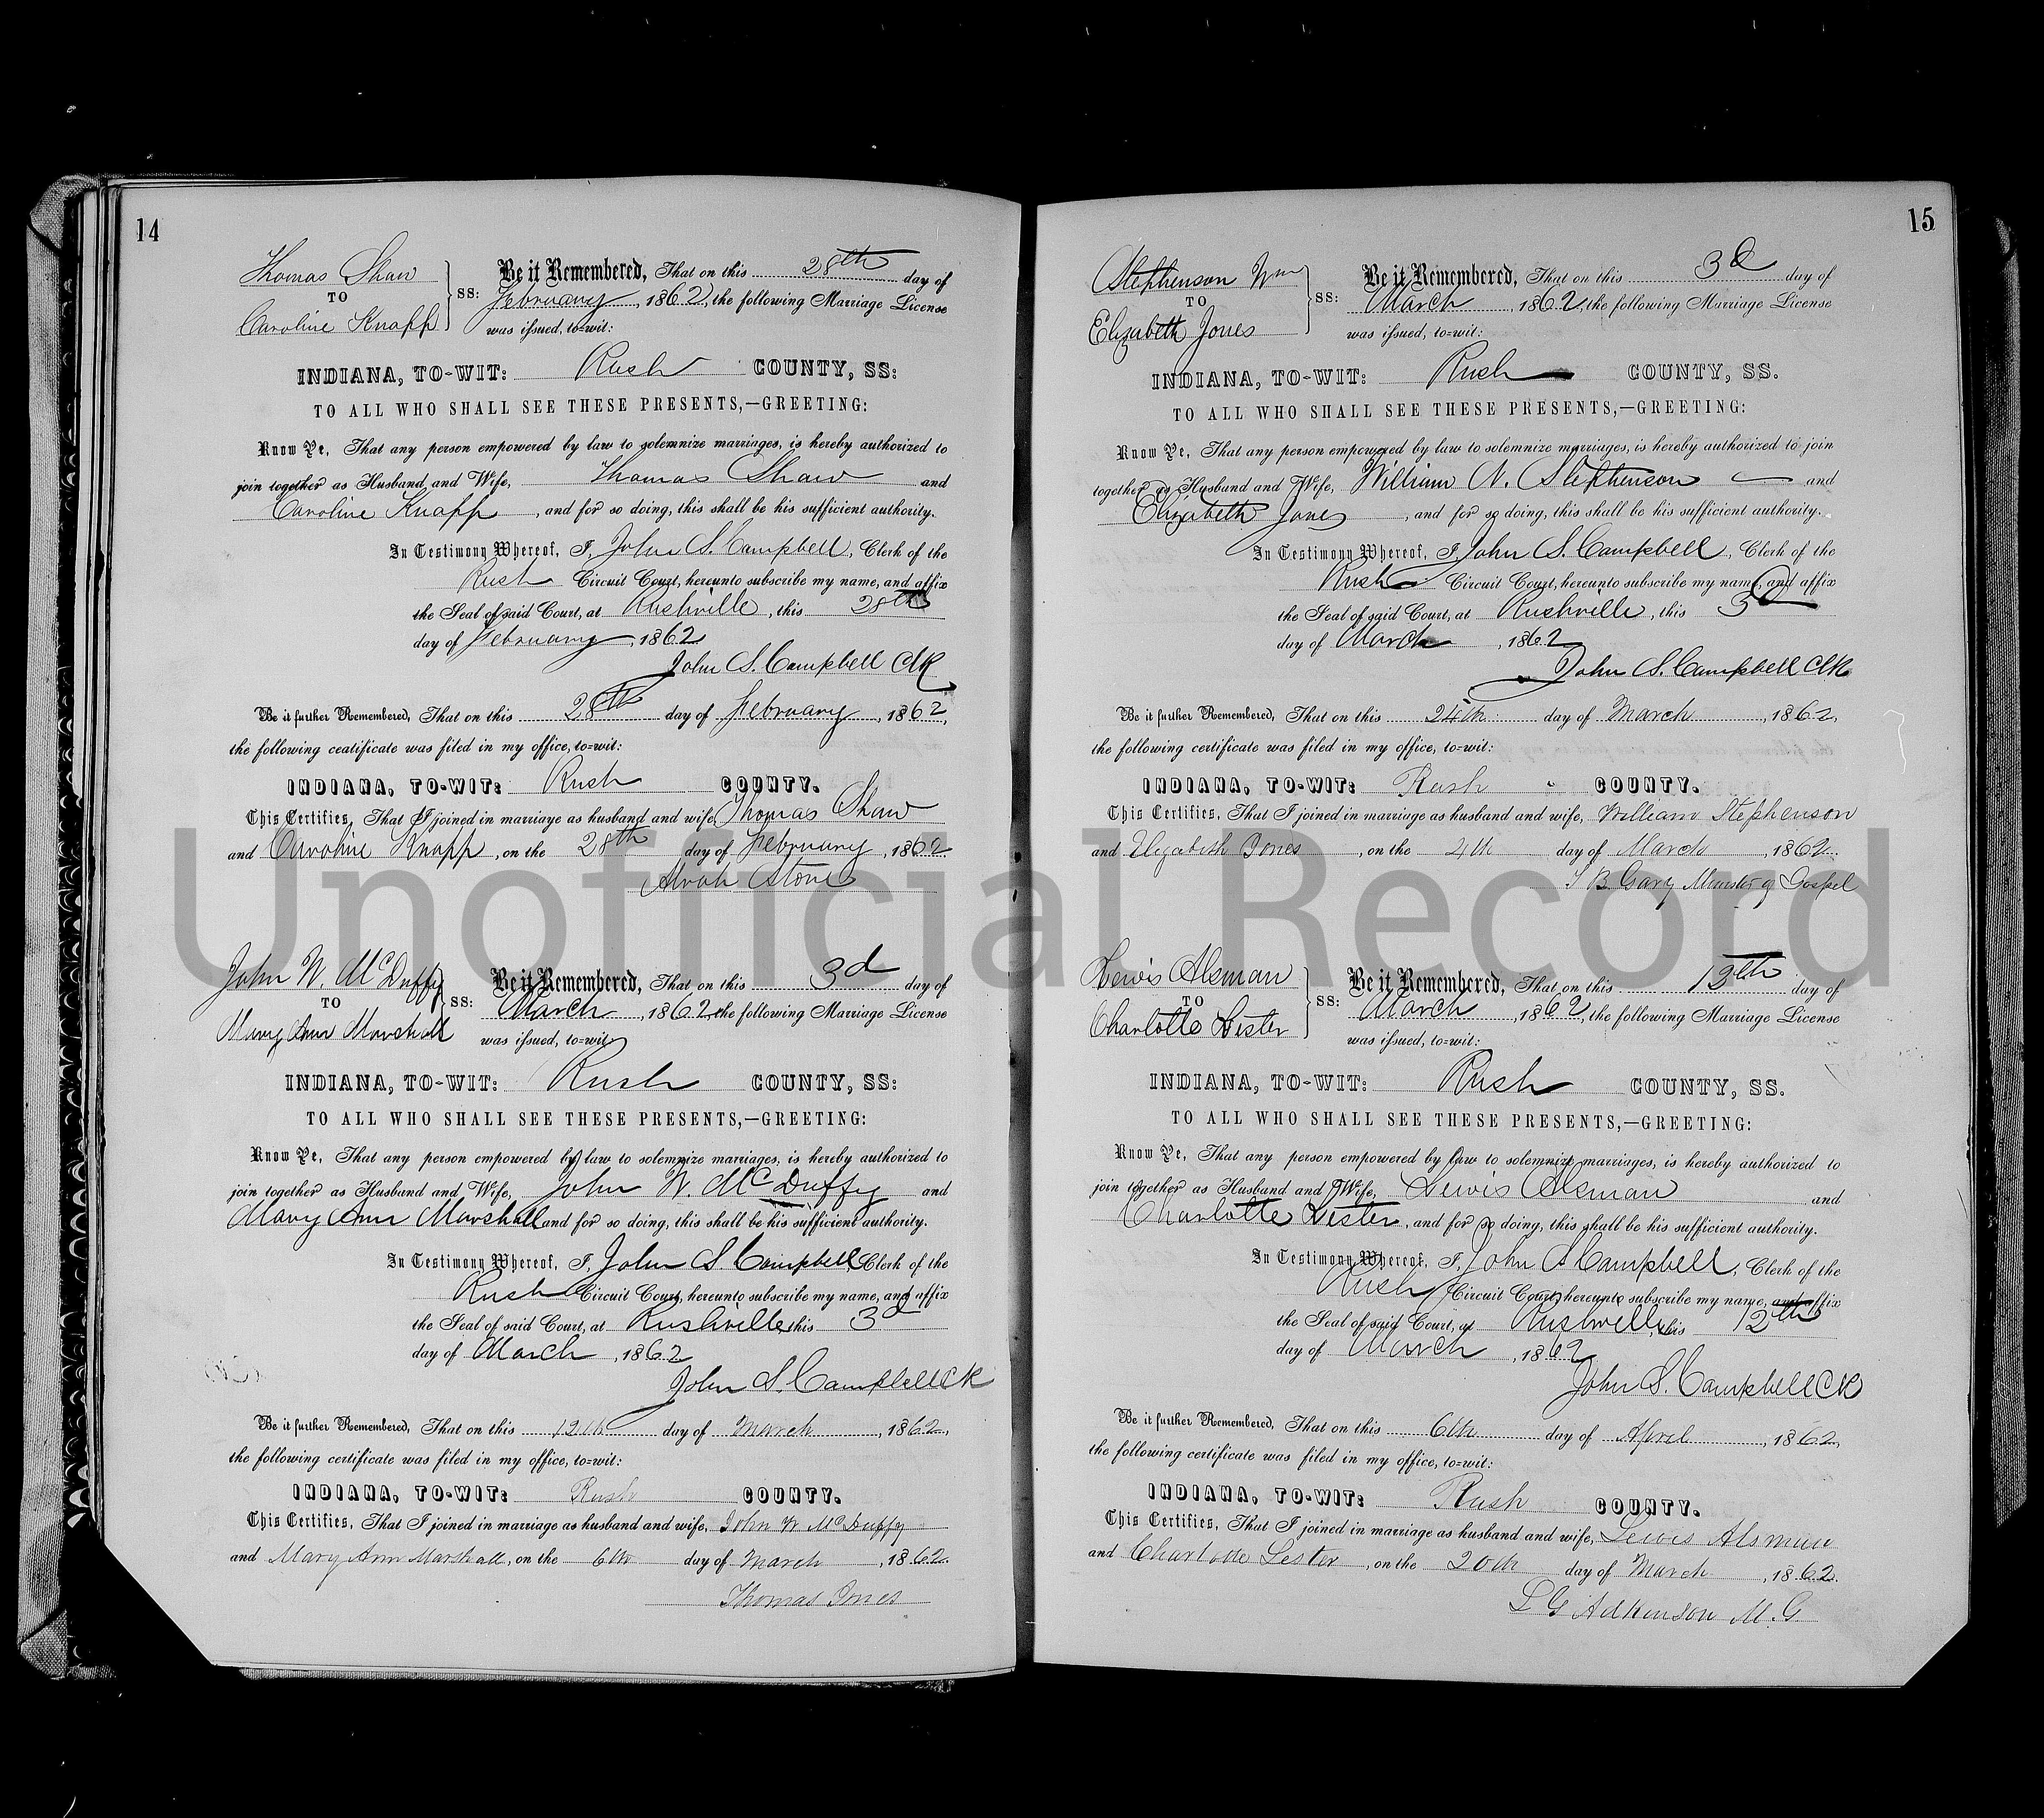 14
Thomas Shaw
TO
Caroline Knapp
SS:
Be it Remembered, That on this 28th day of
February, 1862, the following Marriage License
was issued, to-wit:
INDIANA, TO-WIT: Rush COUNTY, SS:
TO ALL WHO SHALL SEE THESE PRESENTS,—GREETING:
Know Ye, That any person empowered by law to solemnize marriages, is hereby authorized to
join together as Husband and Wife, Thomas Shaw and
Caroline Knapp, and for so doing, this shall be his sufficient authority.
In Testimony Whereof, I, John S. Campbell, Clerk of the
Rush Circuit Court, hereunto subscribe my name, and affix
the Seal of said Court, at Rushville, this 28th
day of February, 1862
John S. Campbell Clk
Be it further Remembered, That on this 28th day of February, 1862,
the following ceatificate was filed in my office, to-wit:
INDIANA, TO-WIT: Rush COUNTY.
This Certifies, That I joined in marriage as husband and wife, Thomas Shaw
and Caroline Knapp, on the 28th day of February, 1862
Alvah Stone
John W. McDuffy
TO
Mary Ann Marshall
SS:
Be it Remembered, That on this 3d day of
March, 1862, the following Marriage License
was issued, to-wit:
INDIANA, TO-WIT: Rush COUNTY, SS:
TO ALL WHO SHALL SEE THESE PRESENTS,—GREETING:
Know Ye, That any person empowered by law to solemnize marriages, is hereby authorized to
join together as Husband and Wife, John W. McDuffy and
Mary Ann Marshall and for so doing, this shall be his sufficient authority.
In Testimony Whereof, I, John S. Campbell, Clerk of the
Rush Circuit Court, hereunto subscribe my name, and affix
the Seal of said Court, at Rushville, this 3d
day of March, 1862
John S. Campbell Clk
Be it further Remembered, That on this 12th day of March, 1862,
the following certificate was filed in my office, to-wit:
INDIANA, TO-WIT: Rush COUNTY.
This Certifies, That I joined in marriage as husband and wife, John W McDuffy
and Mary Ann Marshall, on the 6th day of March, 1862.
Thomas Jones
15
Stephenson Wm
TO
Elizabeth Jones
SS:
Be it Remembered, That on this 3d day of
March, 1862, the following Marriage License
was issued, to-wit:
INDIANA, TO-WIT: Rush COUNTY, SS.
TO ALL WHO SHALL SEE THESE PRESENTS,—GREETING:
Know Ye, That any person empowered by law to solemnize marriages, is hereby authorized to join
together as Husband and Wife, William N. Stephenson and
Elizabeth Jones, and for so doing, this shall be his sufficient authority.
In Testimony Whereof, I, John S. Campbell, Clerk of the
Rush Circuit Court, hereunto subscribe my name, and affix
the Seal of said Court, at Rushville, this 3d
day of March, 1862
John S. Campbell Clk
Be it further Remembered, That on this 24th day of March, 1862,
the following certificate was filed in my office, to-wit:
INDIANA, TO-WIT: Rush COUNTY.
This Certifies, That I joined in marriage as husband and wife, William Stephenson
and Elizabeth Jones, on the 4th day of March, 1862.
B. Gary Minister of Gospel
Lewis Alsman
TO
Charlotte Lester
SS:
Be it Remembered, That on this 12th day of
March, 1862, the following Marriage License
was issued, to-wit:
INDIANA, TO-WIT: Rush COUNTY, SS.
TO ALL WHO SHALL SEE THESE PRESENTS,—GREETING:
Know Ye, That any person empowered by law to solemnize marriages, is hereby authorized to
join together as Husband and Wife, Lewis Alsman and
Charlotte Lester, and for so doing, this shall be his sufficient authority.
In Testimony Whereof, I, John S Campbell, Clerk of the
Rush Circuit Court, hereunto subscribe my name, and affix
the Seal of said Court, at Rushville, this 12th
day of March, 1862
John S. Campbell Clk
Be it further Remembered, That on this 6th day of April, 1862,
the following certificate was filed in my office, to-wit:
INDIANA, TO-WIT: Rush COUNTY.
This Certifies, That I joined in marriage as husband and wife, Lewis Alsman
and Charlotte Lester, on the 20th day of March, 1862.
L G Adkinson M. G
Unofficial Record